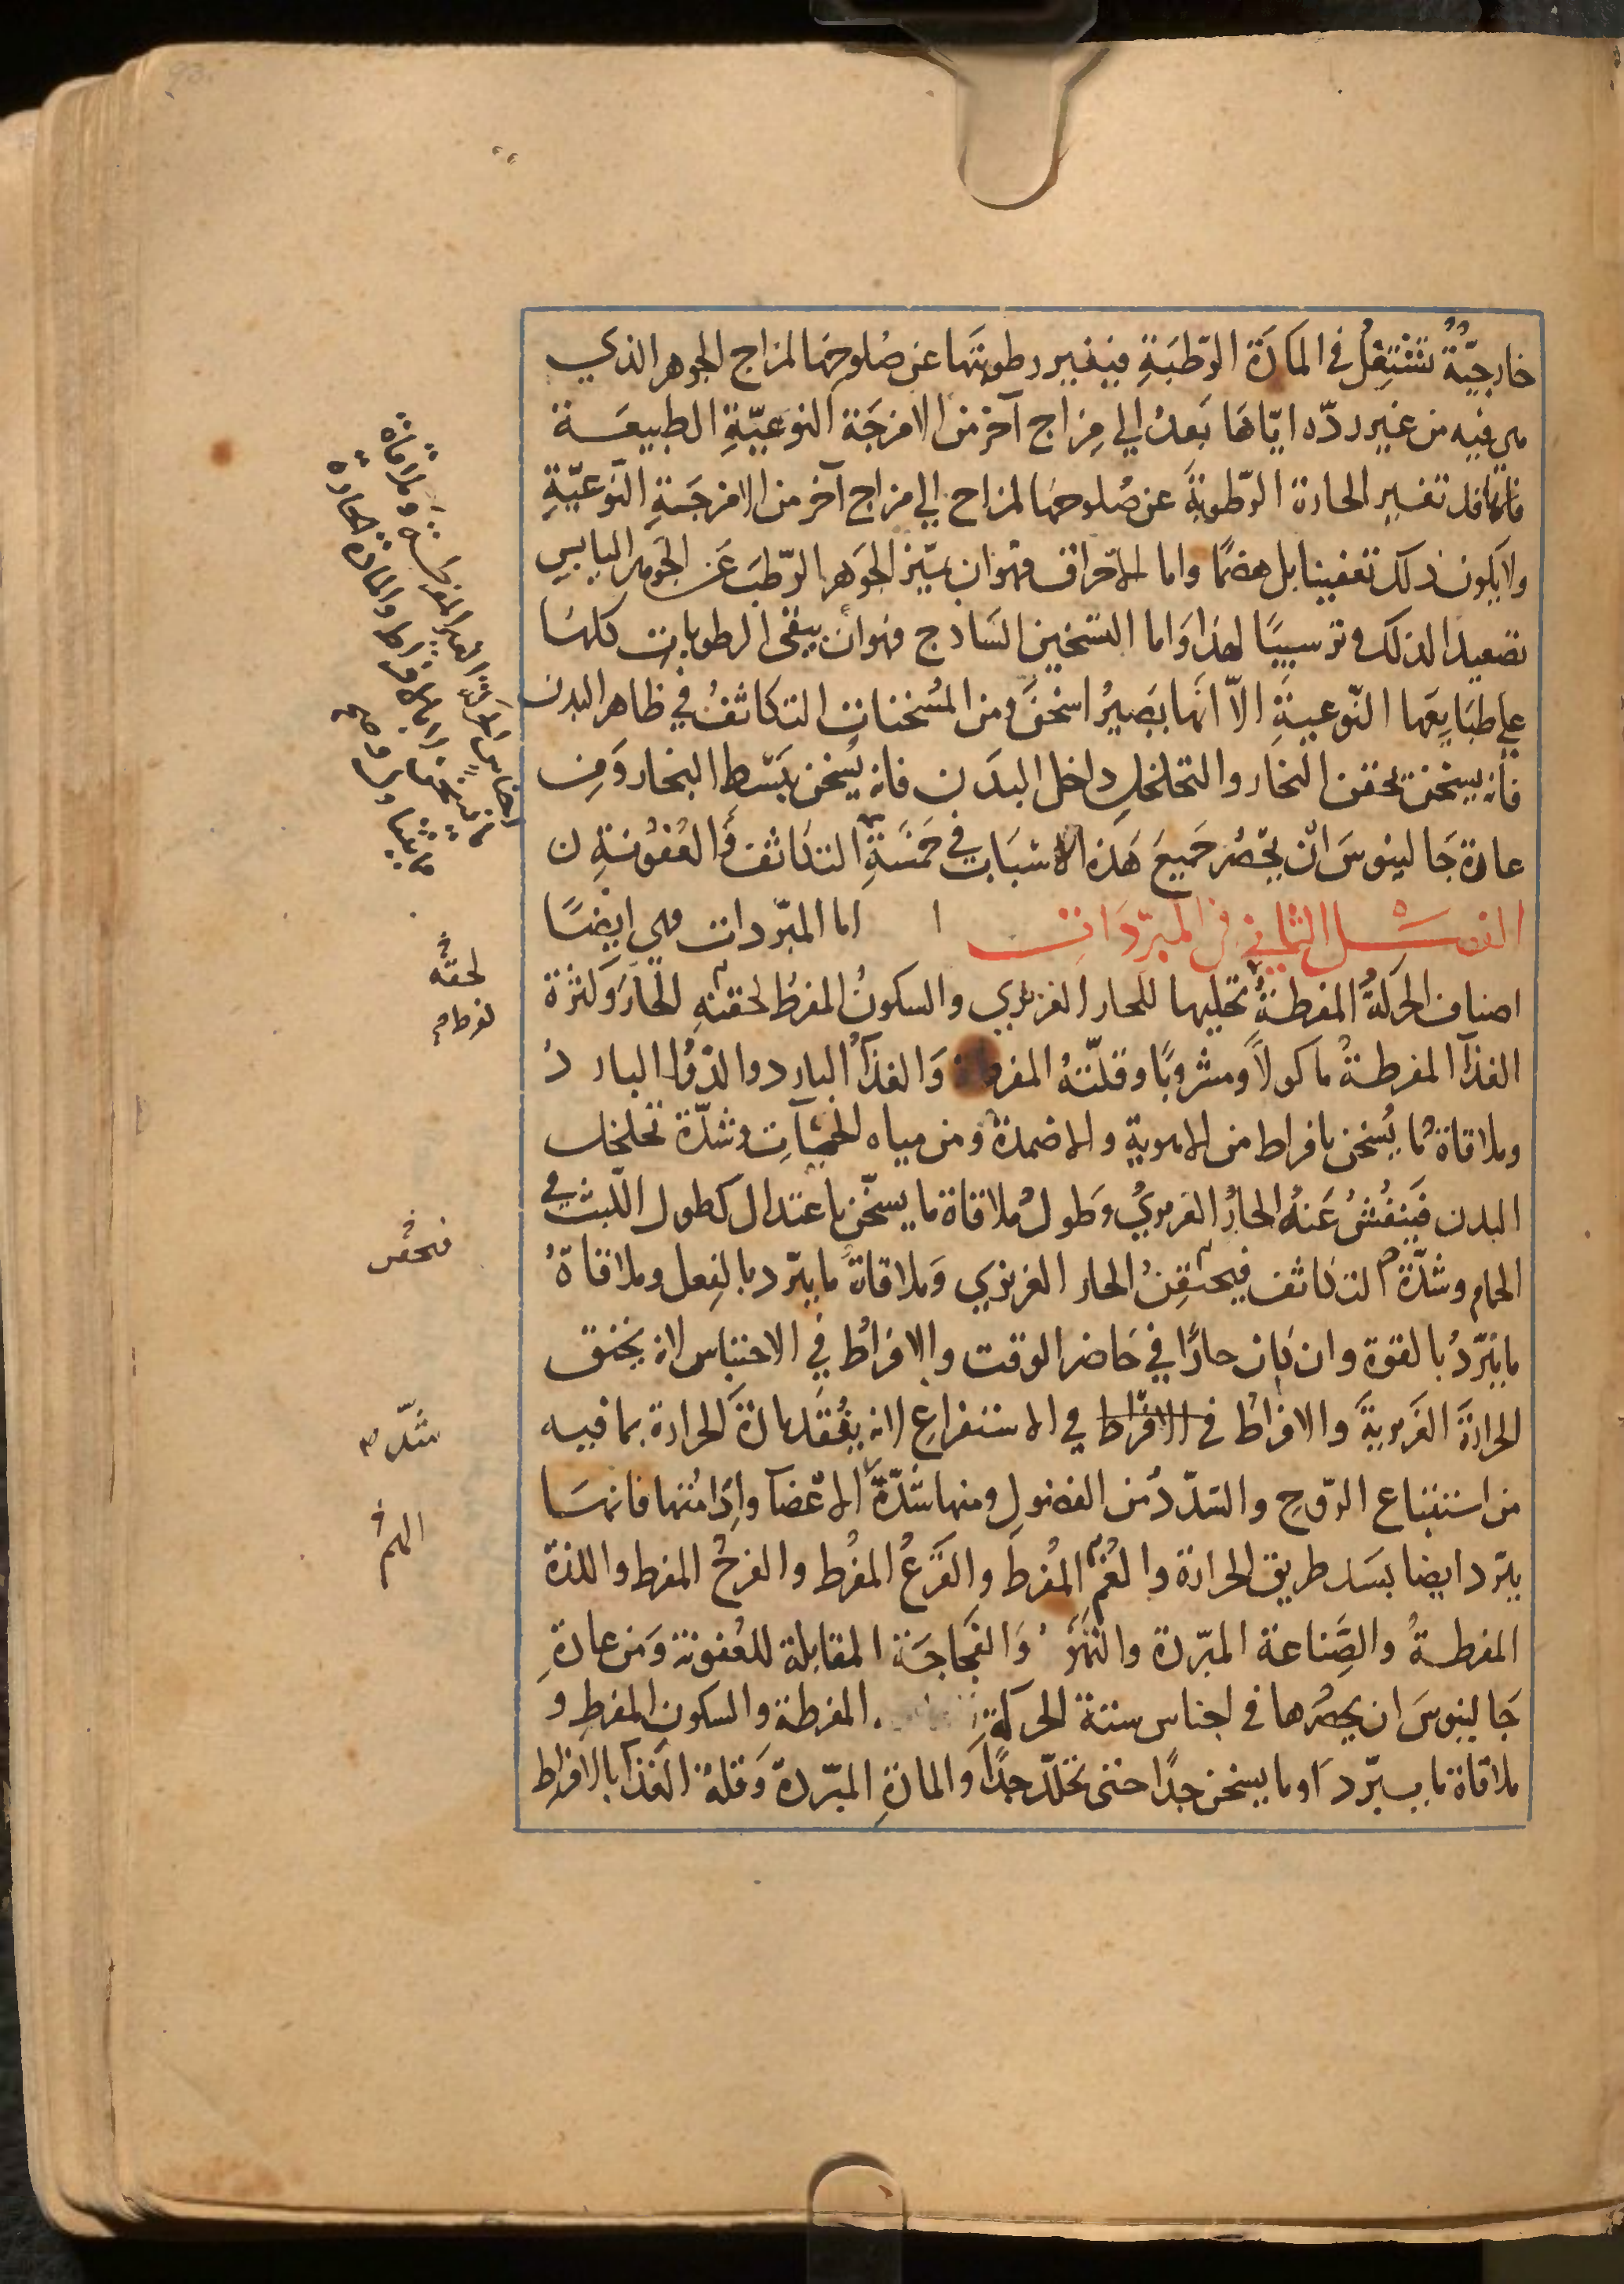 خارجيّة تشتغل في المادة الرّطبَةِ فيغير رطوبتها عن صُلوحها لمزاج الجوهر الذي
هي فيه من غير ردّه ايّاها بَعدُ الي مِزاج آخر من الامزجَة النوعيّةِ الطبيعَـة
فانها قد تغير الحارة الرّطوبةَ عن صُلوحها لمزاج الي مزاج آخر من الامزجَـةِ النّوعيّةِ
ولا يكون ذلك تعفينا بل هضمًا واما الاحراق فهو ان يميّز الجَوهر الرّطبَ عَن الجوهر اليابسِ
تصعيدا لذلك وترسيبًا لهذا وَاما التسخين السَاذج فهو ان يبقى الرطوبات كلها
على طبَايعها النّوعيةِ الاّ انها يَصيرُ اسخنَ ومن المُسخنات التكاثفُ في ظاهر البدن
فانه يسخن بحقن البخار والتخلخل داخل البدَن فانه يُسخن بَسْط البخار وَمِن
عادة جَالينوسَ ان يحصُر جَميعَ هَذه الاسبَاب في خمسَةٍ التكاثف وَالعُفُونـةِ ن
الفصـل الثاني في المبرّدَات اما المبرّدات فهي ايضًا
اصناف الحركةُ المفرطـةُ تحليها للحار الغريزي والسكونُ المفرطُ لحقنهِ الحارّ وَكثرة
الغذآ المفرطـةُ ماكولاً ومشروبًا وقلّتهُ المفرطة وَالغذآُ البارد والدّوا البارد
وملاقاةُ ما يُسخن بافراط من الاهوية والاضمدة ومن مياه الحمّآتِ وشدّة تخلخل
البدن فَينفُشُ عَنهُ الحارُ الغريزيُ وَطولُ ملاقاة ما يسخّن باعتدال كطول اللّبث في
الحمام وشدّة التكاثف فيحتقِنُ الحار الغريزي وَملاقاة ما يبرّد بالفِعل وملاقاةُ
ما يبرّدُ بالقوة وان كان حارًا في حَاضر الوقت والافراطُ في الاحتباس لانه يخنق
الحرارةَ الغَريزيةَ والافراط في الافراط في الاستفراغِ لانه يفُقَد مادة الحرارة بما فيه
من استتباع الرّوحِ والسّدّدُ من الفضول ومنها شدّة الاعضآ وإِدَامُتها فانها
يبرّد ايضا بسَد طريق الحرارة والغُم المُفرطَ والفَزَعُ المفُرط والفرحُ المفرط واللذة
المفرطـةُ والصَّناعة المبرّدة والنّهوُ وَالفجاجَة المقابلة للعُفونة وَمن عادةِ
جَالينوسَ ان يحصُرها في اجناس ستة الحركةِ المفرطة والسكونِ المفرطِ و
ملاقاة ما يبـرّد اَو ما يسخن جدًا حتى تخلّل جدًا وَالمادّةِ المبّردة وَقلة الغذآ بالافراط
لحقنه
لفرط
فيحقن
شدّ
الهم